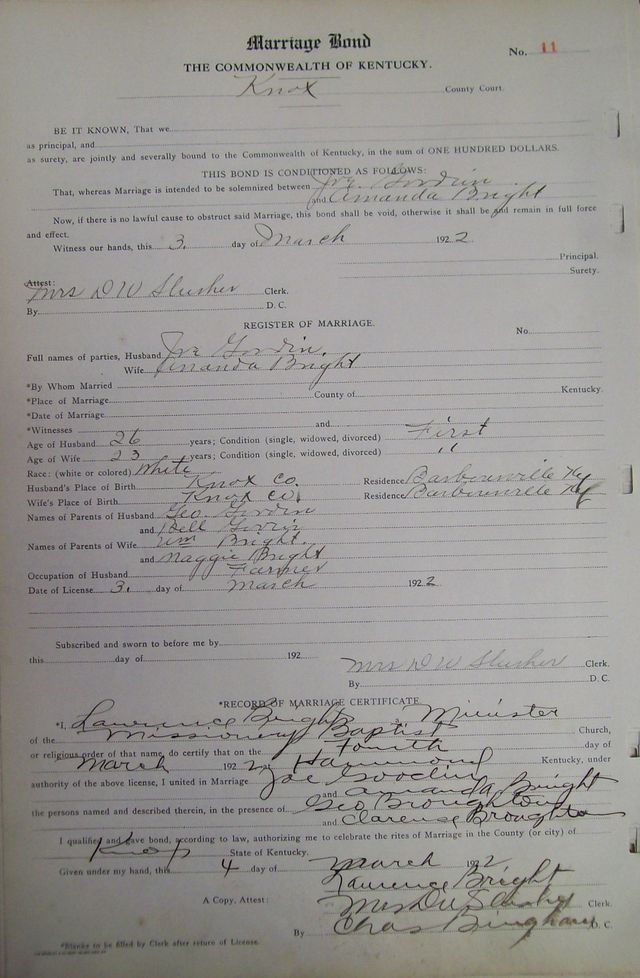 Marriage Bond
No. 11
THE COMMONWEALTH OF KENTUCKY.
Knox County Court.
BE IT KNOWN, That we
as principal, and
as surety, are jointly and severally bound to the Commonwealth of Kentucky, in the sum of ONE HUNDRED DOLLARS.
THIS BOND IS CONDITIONED AS FOLLOWS:
That, whereas Marriage is intended to be solemnized between Joe Gordin
and Amanda Bright
Now, if there is no lawful cause to obstruct said Marriage, this bond shall be void, otherwise it shall be and remain in full force
and effect.
Witness our hands, this 3. day of March 1922
Principal.
Surety.
Attest:
Mrs D W Slusher Clerk.
By D. C.
REGISTER OF MARRIAGE.
No.
Full names of parties, Husband Joe Gordin.
Wife Amanda Bright
*By Whom Married
*Place of Marriage County of Kentucky.
*Date of Marriage
*Witnesses and
Age of Husband 26 years; Condition (single, widowed, divorced) First
Age of Wife 23 years; Condition (single, widowed, divorced) "
Race: (white or colored) White
Husband's Place of Birth Knox Co. Residence Barbourville Ky
Wife's Place of Birth Knox Co. Residence Barbourville Ky
Names of Parents of Husband Geo. Gordin
and Bell Gordin
Names of Parents of Wife Wm Bright.
and Maggie Bright
Occupation of Husband Farmer
Date of License 3. day of March 1922
Subscribed and sworn to before me by
this day of 192
Mrs D W Slusher Clerk.
By D. C.
*RECORD OF MARRIAGE CERTIFICATE
*I, Lawrence Bright, Minister
of the Missionery Baptist Church,
or religious order of that name, do certify that on the Fourth day of
March 1922 at Hammond Kentucky, under
authority of the above license, I united in Marriage Joe Goodin
and Amanda Bright
the persons named and described therein, in the presence of Geo Broughton
and Clarence Broughton
I qualified and gave bond, according to law, authorizing me to celebrate the rites of Marriage in the County (or city) of
Knox State of Kentucky.
Given under my hand, this 4 day of March 1922
Lawrence Bright
A Copy, Attest: Mrs D W Slusher Clerk.
By Chas Bingham D. C.
*Blanks to be filled by Clerk after return of License.